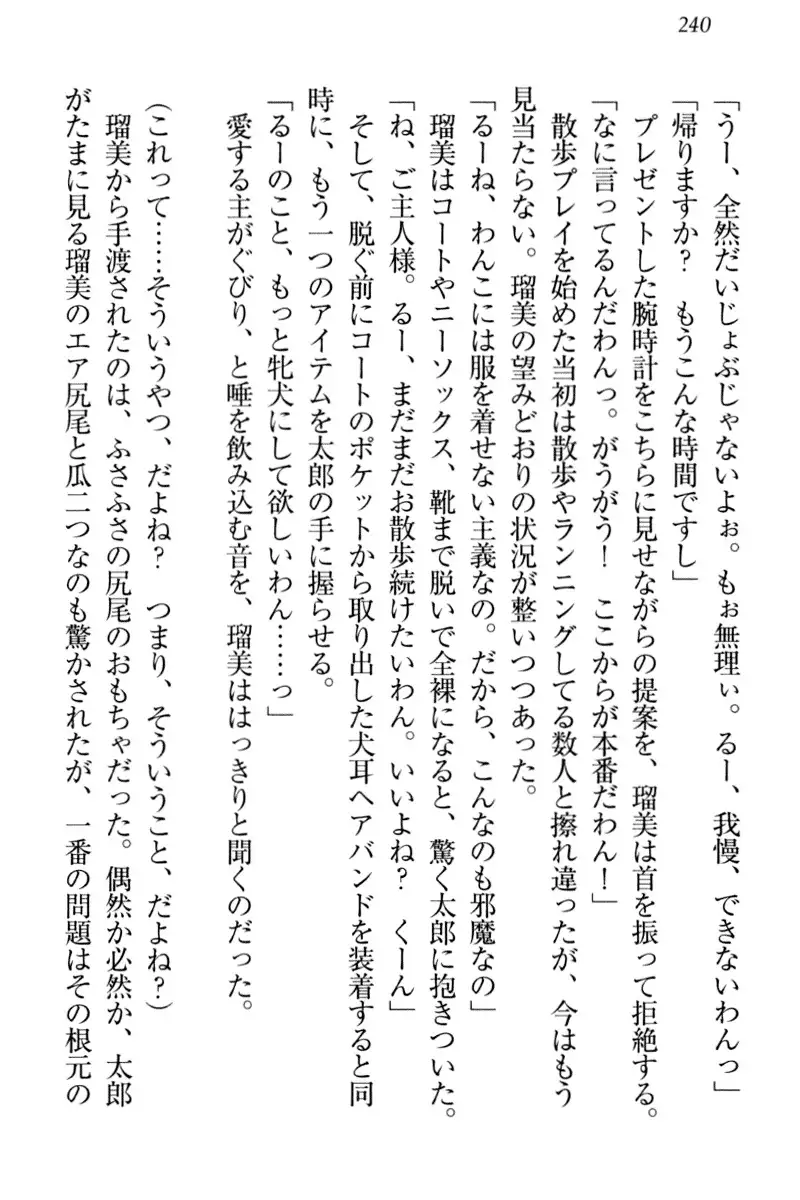 240
「うー、全然だいじょぶじゃないよぉ。もぉ無理ぃ。るー、我慢、できないわんっ」
「帰りますか?　もうこんな時間ですし」
　プレゼントした腕時計をこちらに見せながらの提案を、瑠美は首を振って拒絶する。
「なに言ってるんだわんっ。がうがう!　ここからが本番だわん!」
　散歩プレイを始めた当初は散歩やランニングしてる数人と擦れ違ったが、今はもう
見当たらない。瑠美の望みどおりの状況が整いつつあった。
「るーね、わんこには服を着せない主義なの。だから、こんなのも邪魔なの」
　瑠美はコートやニーソックス、靴まで脱いで全裸になると、驚く太郎に抱きついた。
「ね、ご主人様。るー、まだまだお散歩続けたいわん。いいよね?　くーん」
　そして、脱ぐ前にコートのポケットから取り出した犬耳ヘアバンドを装着すると同
時に、もう一つのアイテムを太郎の手に握らせる。
「るーのこと、もっと牝犬にして欲しいわん……っ」
　愛する主がぐびり、と唾を飲み込む音を、瑠美ははっきりと聞くのだった。
(これって……そういうやつ、だよね?　つまり、そういうこと、だよね?)
　瑠美から手渡されたのは、ふさふさの尻尾のおもちゃだった。偶然か必然か、太郎
がたまに見る瑠美のエア尻尾と瓜二つなのも驚かされたが、一番の問題はその根元の